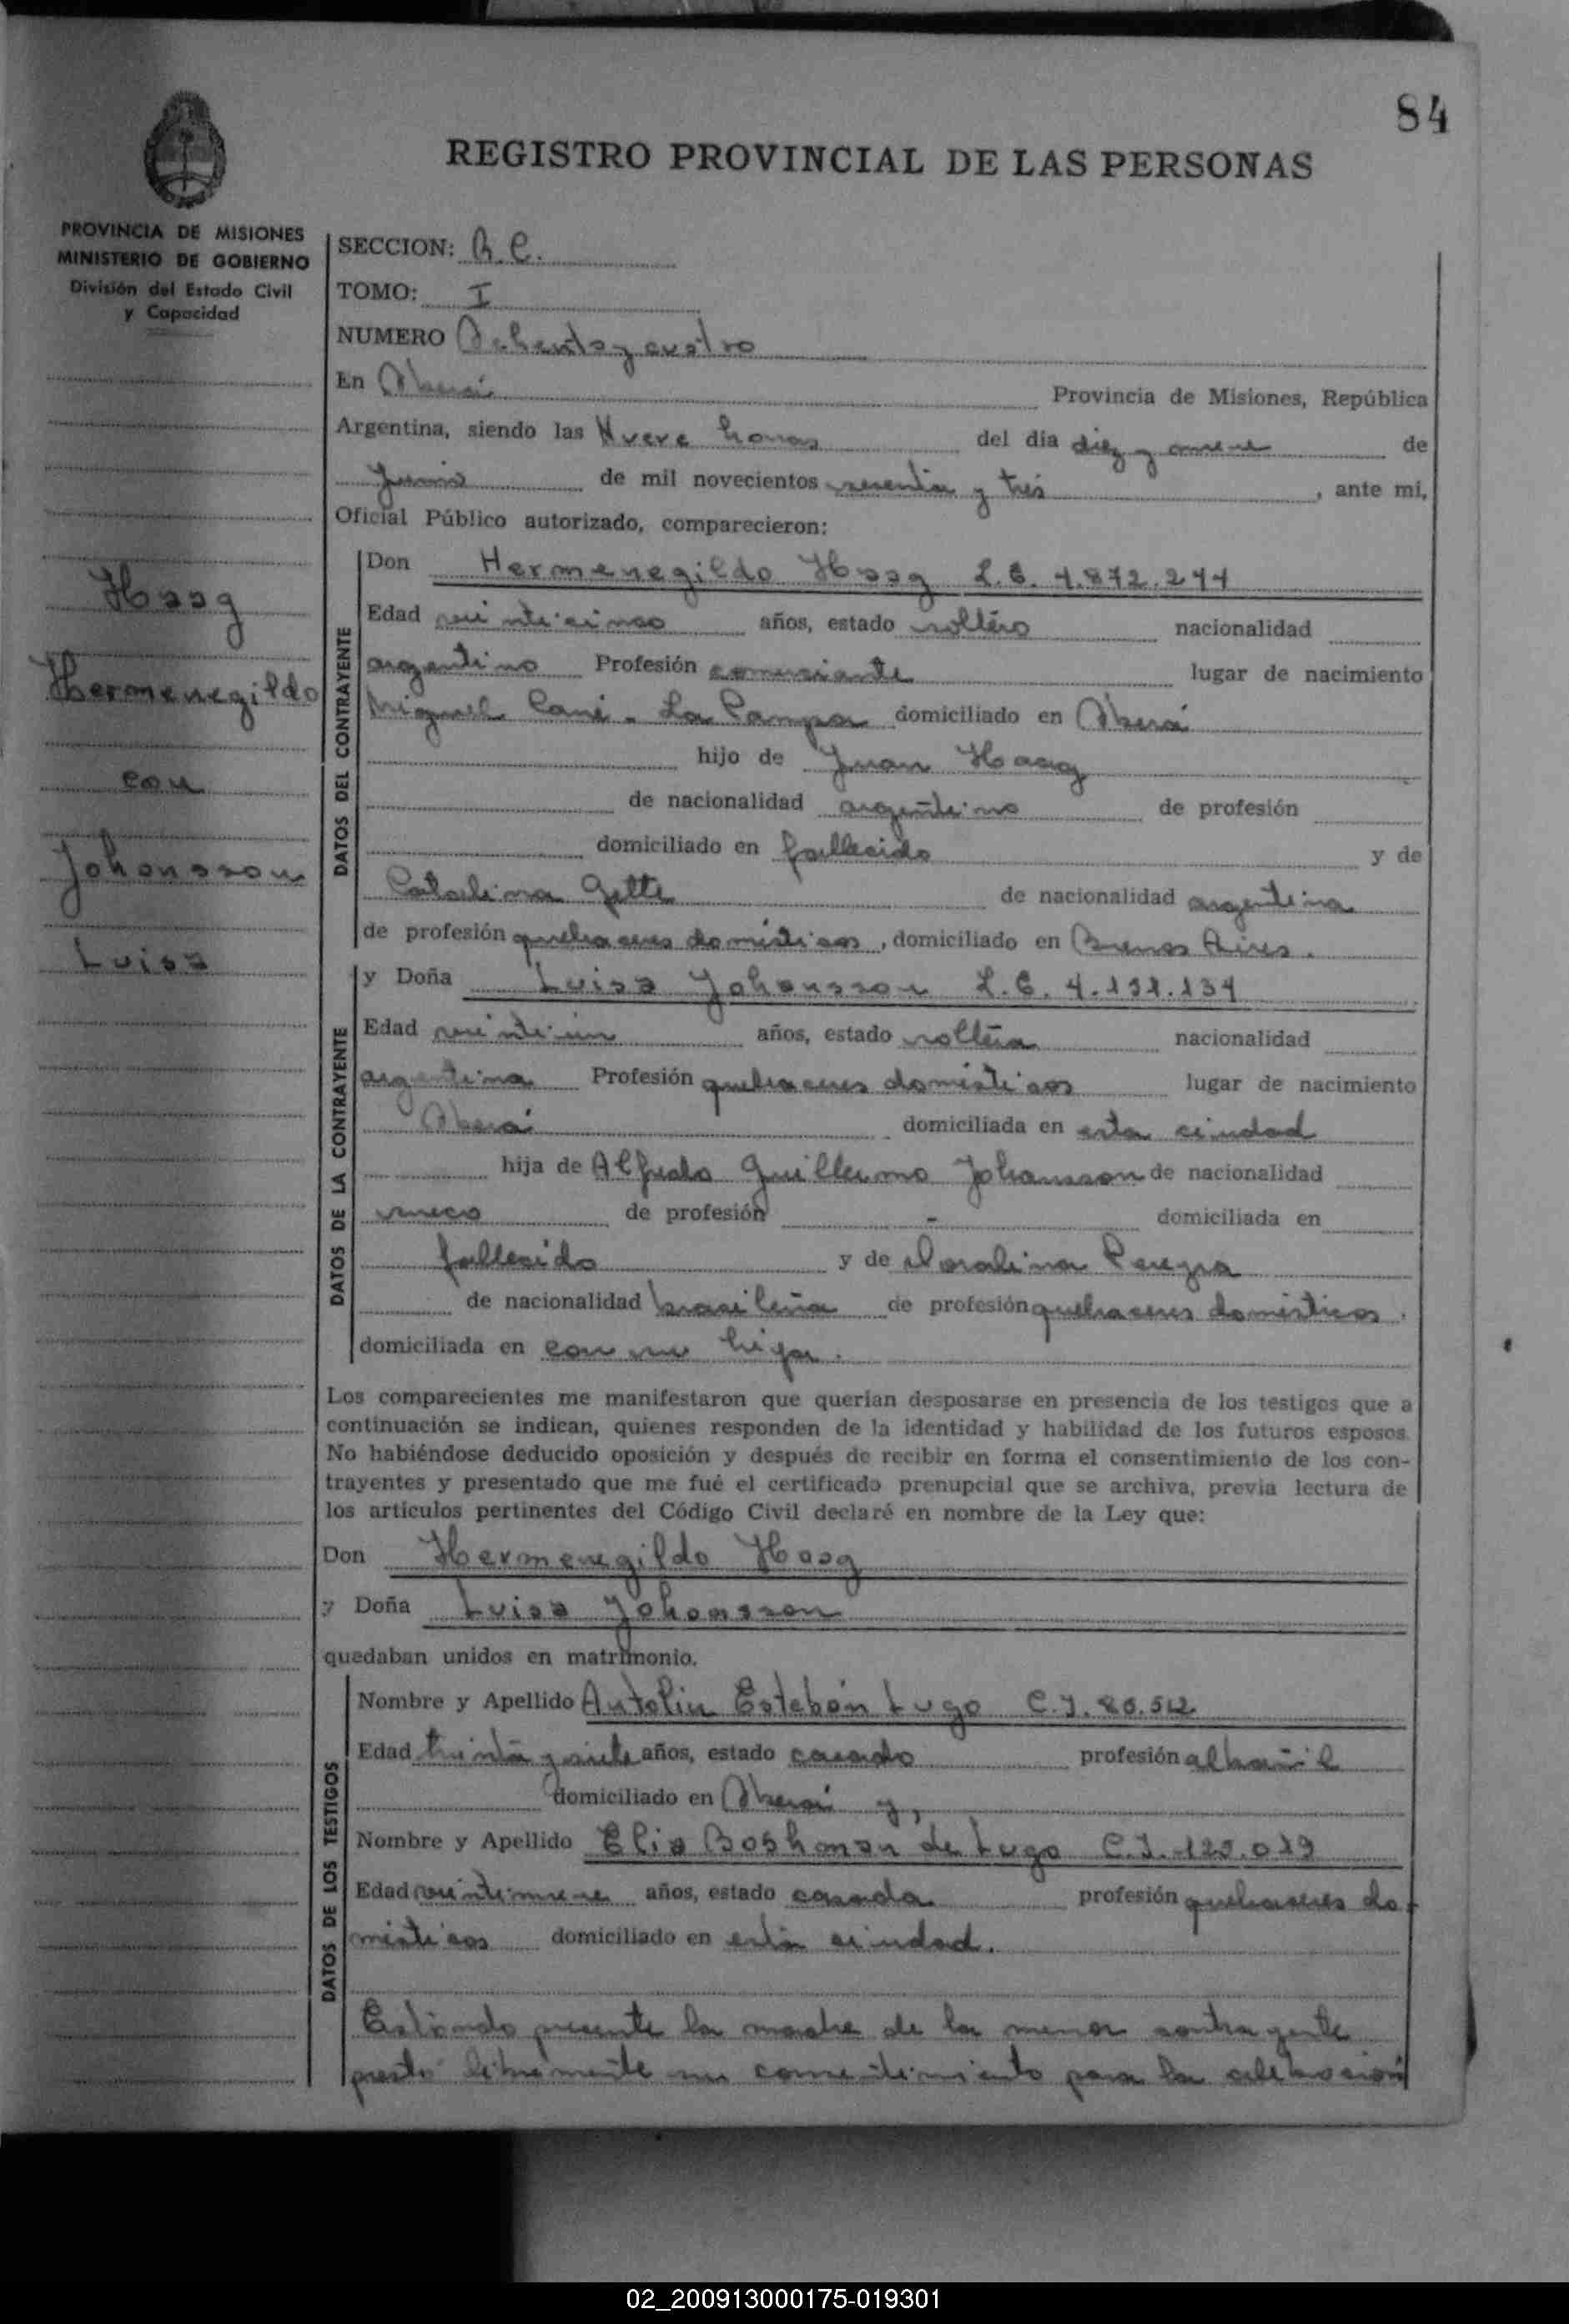 84
REGISTRO PROVINCIAL DE LAS PERSONAS
PROVINCIA DE MISIONES
MINISTERIO DE GOBIERNO
División del Estado Civil
y Capacidad
Haag
Hermenegildo
con
Johansson
Luisa
SECCION: R.C.
TOMO: I
NUMERO Ochenta y cuatro
En Oberá Provincia de Misiones, República
Argentina, siendo las Nueve horas del día diez y nueve de
Junio de mil novecientos sesenta y tres, ante mi,
Oficial Público autorizado, comparecieron:
DATOS DEL CONTRAYENTE
Don Hermenegildo Haag L.E. 4.872.244
Edad veinticinco años, estado soltero nacionalidad
argentino Profesión comerciante lugar de nacimiento
Miguel Cané - La Pampa domiciliado en Oberá
hijo de Juan Haag
de nacionalidad argentino de profesión
domiciliado en fallecido y de
Catalina Gette de nacionalidad argentina
de profesión quehaceres domésticos, domiciliado en Buenos Aires.
DATOS DE LA CONTRAYENTE
y Doña Luisa Johansson L.C. 4.191.134
Edad veintiún años, estado soltera nacionalidad
argentina Profesión quehaceres domésticos lugar de nacimiento
Oberá domiciliada en esta ciudad
hija de Alfredo Guillermo Johansson de nacionalidad
sueco de profesión - domiciliada en
fallecido y de Doralina Pereyra
de nacionalidad brasileña de profesión quehaceres domésticos.
domiciliada en con su hija.
Los comparecientes me manifestaron que querían desposarse en presencia de los testigos que a
continuación se indican, quienes responden de la identidad y habilidad de los futuros esposos.
No habiéndose deducido oposición y después de recibir en forma el consentimiento de los con-
trayentes y presentado que me fué el certificado prenupcial que se archiva, previa lectura de
los artículos pertinentes del Código Civil declaré en nombre de la Ley que:
Don Hermenegildo Haag
y Doña Luisa Johansson
quedaban unidos en matrimonio.
DATOS DE LOS TESTIGOS
Nombre y Apellido Antolin Esteban Lugo C.I. 80.512
Edad treinta y siete años, estado casado profesión albañil
domiciliado en Oberá y,
Nombre y Apellido Elia de Lugo C.I. 123.019
Edad veintinueve años, estado casada profesión quehaceres do-
mésticos domiciliado en esta ciudad.
Estando presente la madre de la menor contrayente
prestó libremente su consentimiento para la celebración
02_200913000175-019301